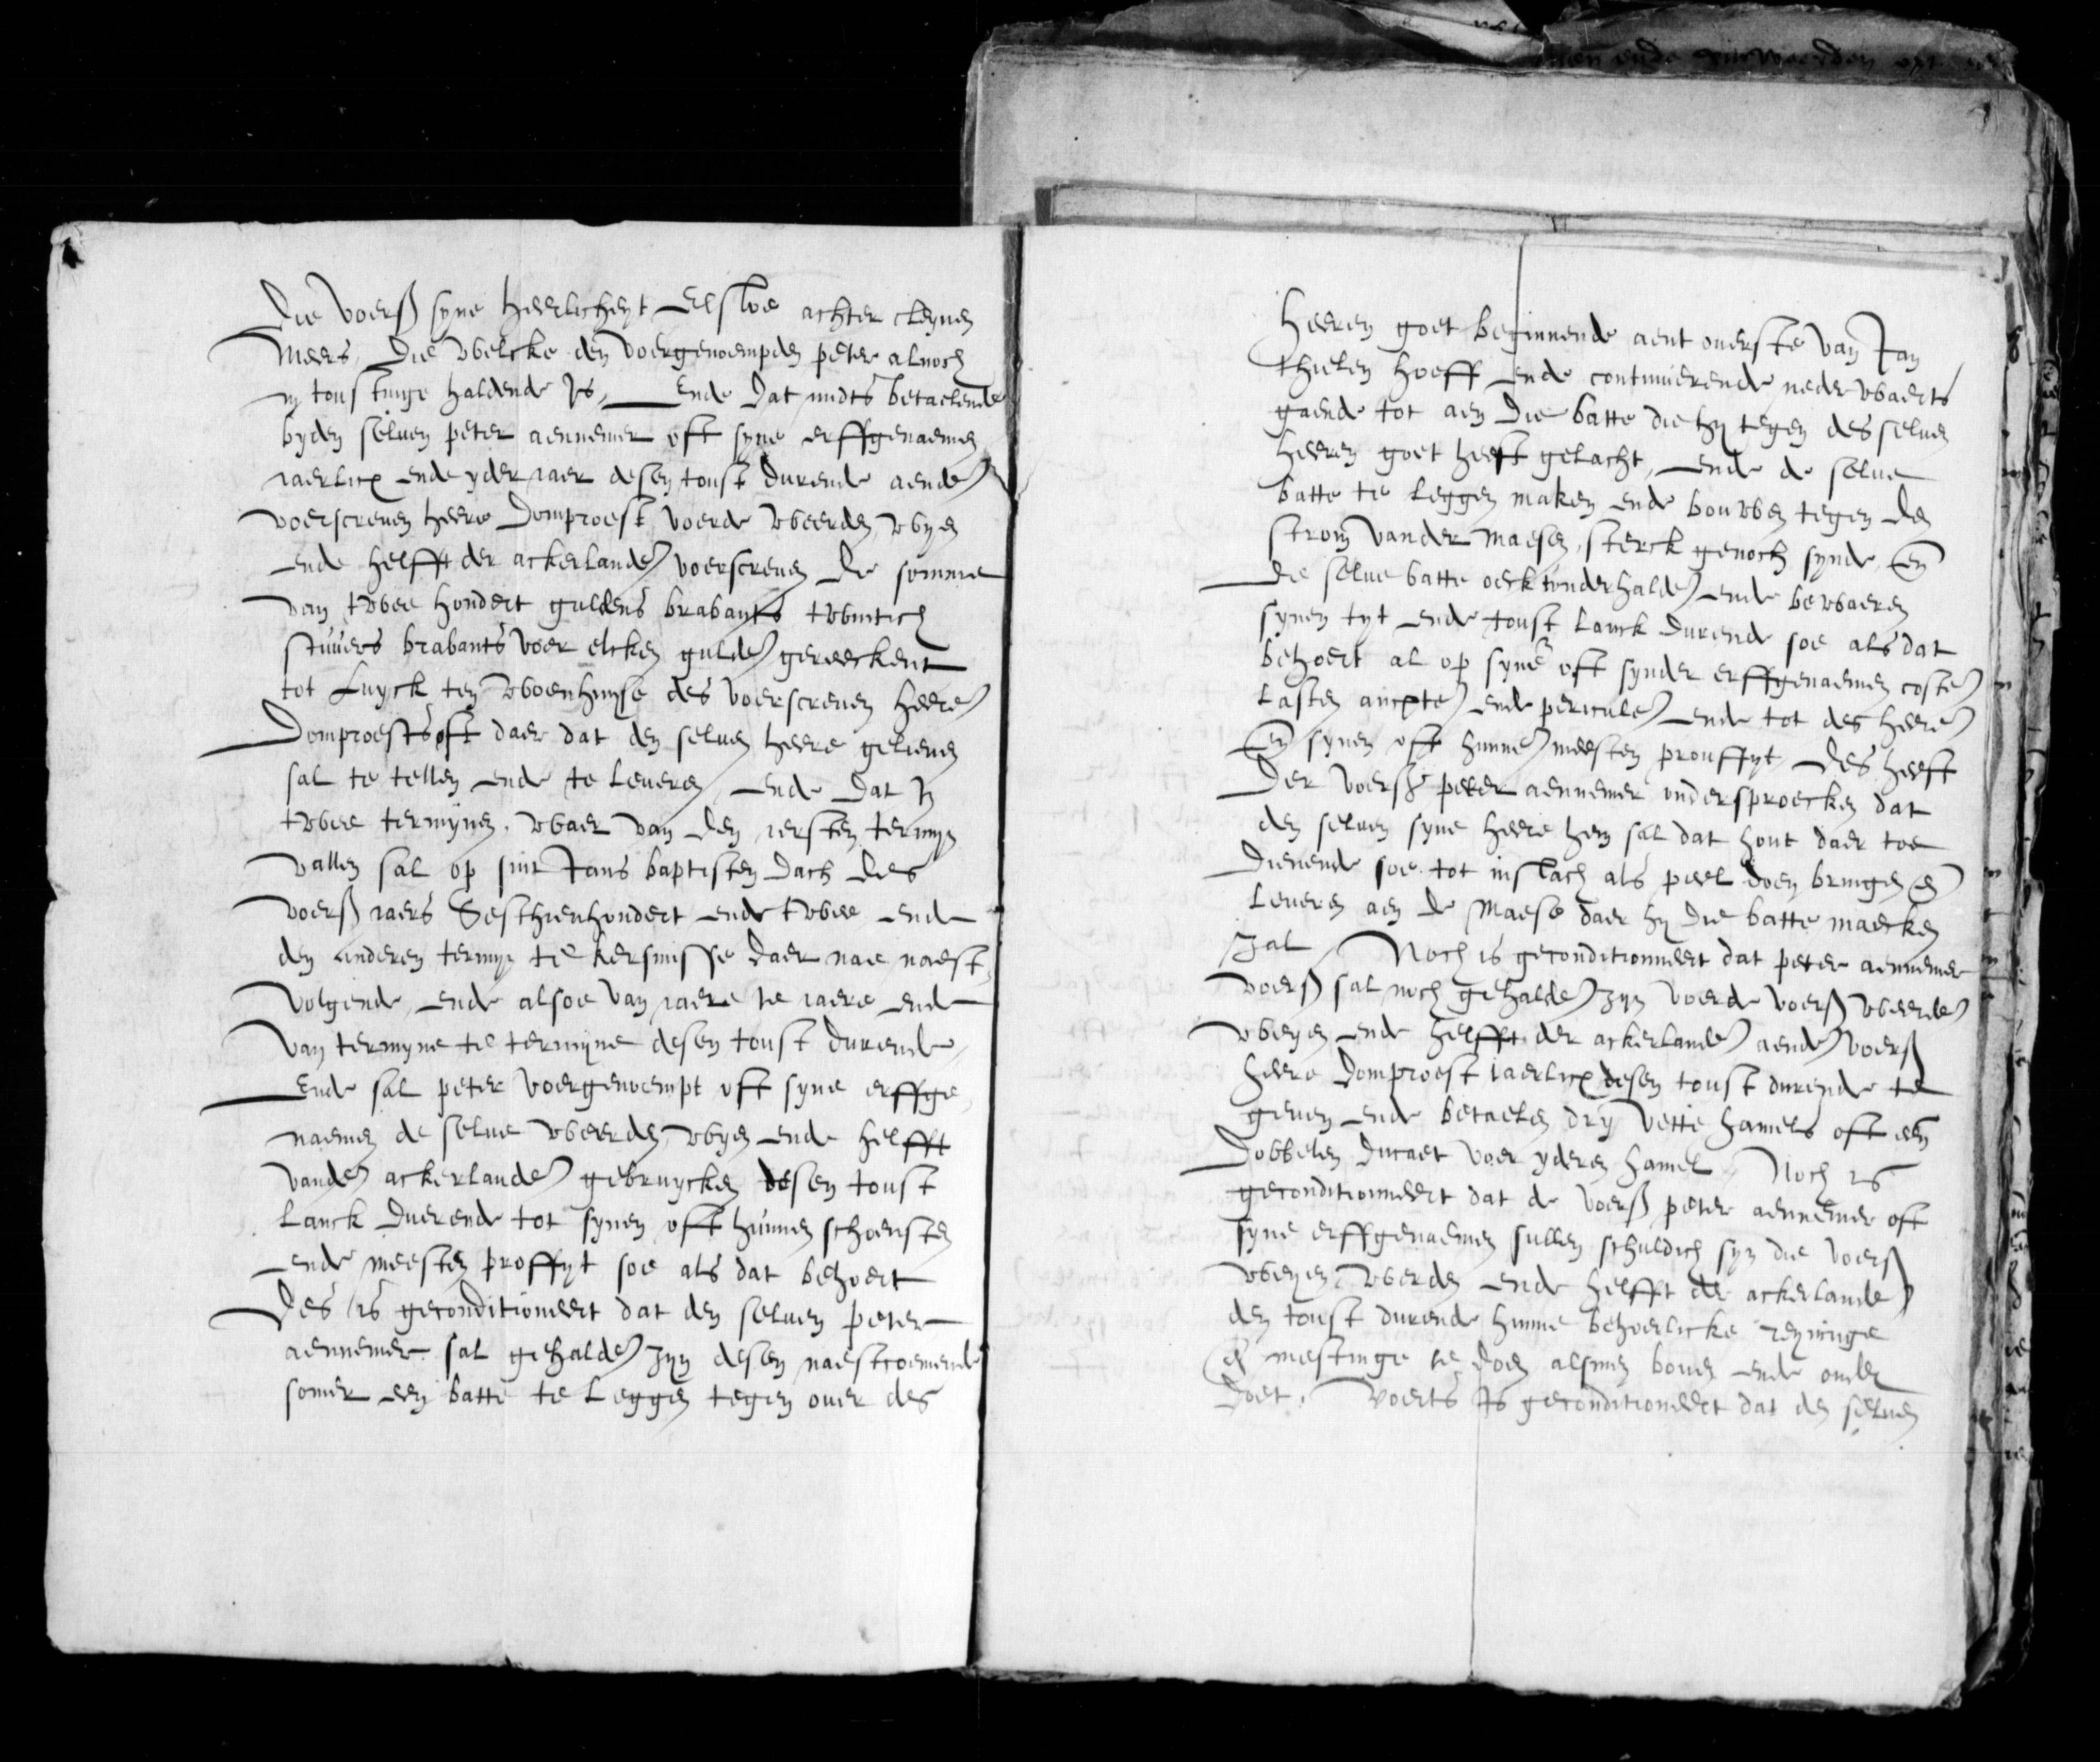 Die voerß syne heerlicheyt Elsloe achter cleynen
Meers, Die welcke den voergenoempden peter alnoch
in toustinge haldende Is, Ende Dat midts betaelende
byden seluen peter aennemer oft syne erffgenaemen
iaerlicx ende yder iaer desen toust durende aenden
voerscreuen heere Domproest voerde weerden, wyen
ende helfft der ackerlanden voerscreuen de somme
van twee hondert guldens brabants twintich
stuuers brabants voer elcken gulden gereeckent
tot Luyck ten woenhuyse des voerscreuen heeren
Domproests oft daer dat den seluen heere gelieuen
sal te tellen ende te leueren, ende Dat In
twee termynen, waer van den iersten termyn
vallen sal op sint Jans baptisten Dach des
voerß iaers Sesthienhondert ende twee ende
den anderen termyn te kersmisse daer nae naest
volgende, ende alsoe van iaere te iaere ende
van termyne te termyne desen toust durende,
Ende sal peter voergenoempt oft syne erffge,
naemen de selue weerden, wyen ende helfft
vanden ackerlanden gebruycken desen toust
lanck duerende tot synen oft hunnen schoensten
ende meesten proffyt soe als dat behoert
Des is geconditioneert dat den seluen peter
aennemer sal gehalden zyn desen naestcoemende
somer een batte te leggen tegen ouer des
Heeren goet beginnende aent ouerste van Jan
Thielen hoeff ende continuerende nederwaerts
gaende tot aen die batte die hy tegen des seluen
heeren goet heeft gelacht, ende de selue
batte te leggen maken ende bouwen tegen den
strom vander Maesen, sterck genoch synde, en
die selue batte oeck tonderhalden ende bewaeren
synen tyt ende toust lanck durende soe als dat
behoert al op syne oft synder erffgenaemen costen
lasten ancxten ende periculen ende tot des heeren
en synen oft hunnen meesten prouffyt, Des heeft
Der voerß peter aennemer ondersproecken dat
den seluen syne heere hem sal dat hout daer toe
dienende soe tot inslach als peel doen bringen en
leueren aen de Maese daer hy die batte maecken
sal, Noch is geconditionneert dat peter aennemer
voerß sal noch gehalden zyn voerde voerß weerden
weyen ende helfft der ackerlanden aenden voerß
heere Domproest iaerlicx desen toust durende te
geuen ende betaelen dry vette hamels oft een
Dobbelen Ducaet voer yderen hamel, Noch is
geconditionneert dat de voerß peter aennemer oft
syne erffgenaemen sullen schuldich syn die voerß
weyen, werden ende helfft der ackerlanden
den toust durende hunne behoerlicke reyninge
en mestinge te doen alsmen bouen ende onder
doet. Voerts Is geconditioneert dat den seluen